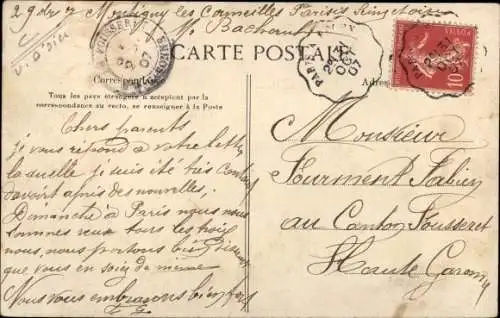 29 dre 7 Montigny les Cormeilles Paris
CARTE POSTALE
Correspondance
Tous les pays étrangers n'acceptent pas la
correspondance au verso, se renseigner à la Poste
Adres
FOUSSERET
07
PARIS
OCT
07
10
Chers parents
je vous répond a votre lettre
laquelle je suis été très content
davoir apris des nouvelles,
Dimanche à Paris nous nous
sommes veus tous les trois
nous, nous portons bien
que vous en soiez de meme
Nous vous embrasons bien fort
Monsieur
Fourment Fabien
au Canton Fousseret
Haute Garonne